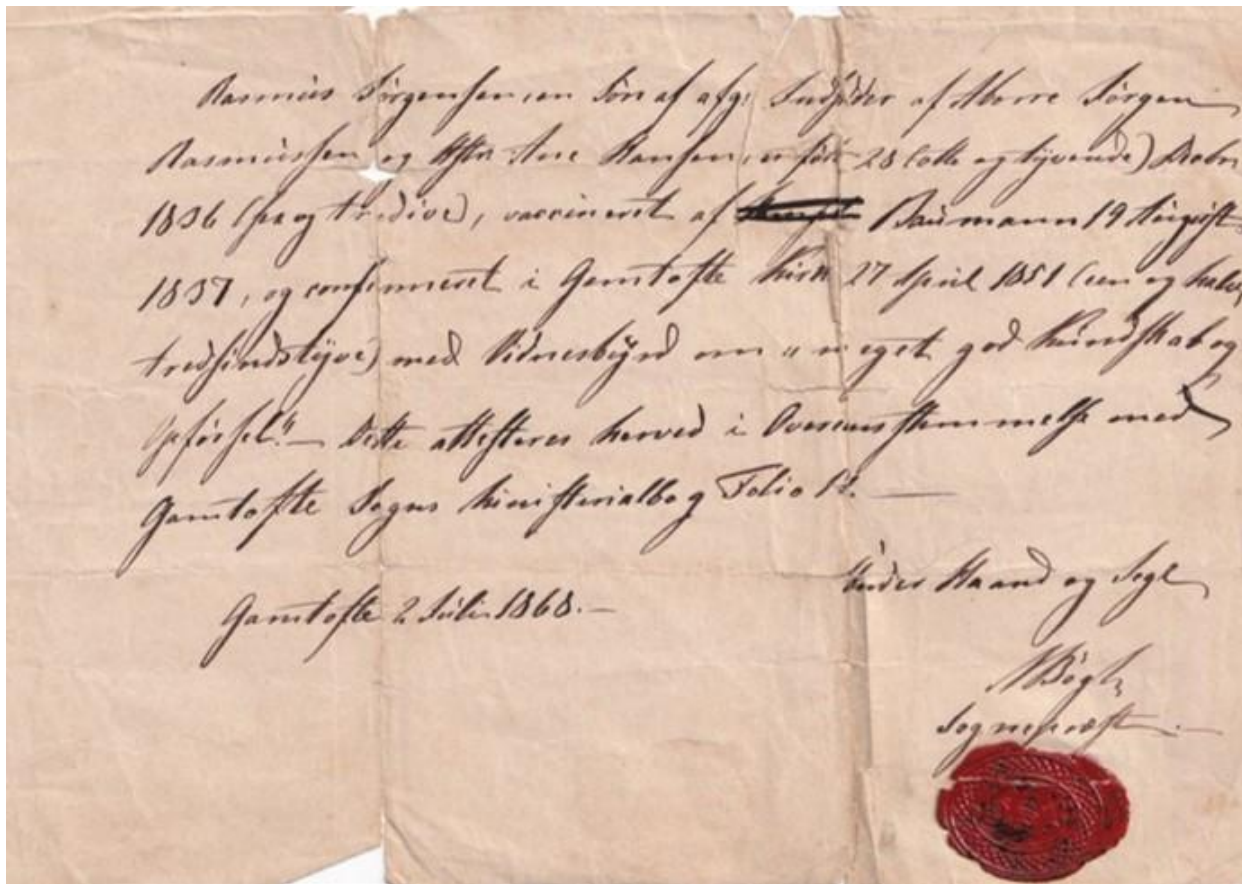 Rasmus Jørgensen, en Søn af afg: Indsidder af Aborre Jørgen
Rasmussen og Hstr Ane Hansen, er født 28 (otte og tyvende) Decbr
1836 (sex og tredive), vaccineret af Baumann 19 August
1837, og confirmeret i Gamtofte Kirke 27 April 1851 (een og halv
tredsindstyve) med Vidnesbyrd om "meget god Kundskab og
Opførsel." — Dette attesteres herved i Overeensstemmelse med
Gamtofte Sogns Ministerialbog Folio
Under Haand og Segl
Gamtofte 2 Juli 1868. —
Sognepræst